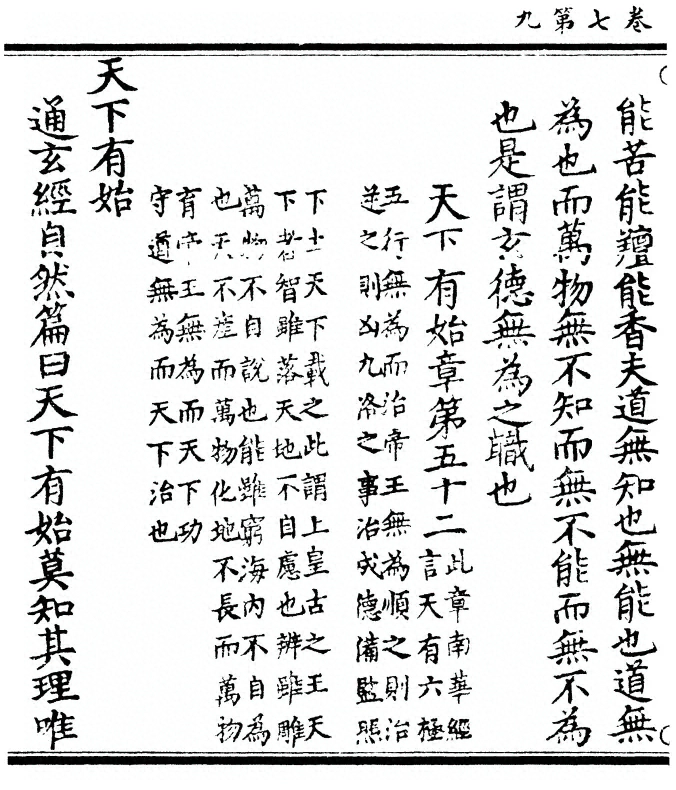 卷七第九
能苦能羶能香夫道無知也無能也道無
為也而萬物無不知而無不能而無不為
也是謂玄德無為之職也
天下有始章第五十二
此章南華經
言天有六極
五行無為而治帝王無為順之則治
逆之則凶九洛之事治成德備監照
下土天下載之此謂上皇古之王天
下者智雖落天地不自慮也辨雖雕
萬物不自說也能雖窮海内不自為
也天不產而萬物化地不長而萬物
育帝王無為而天下功
守道無為而天下治也
天下有始
通玄經自然篇曰天下有始莫知其理唯